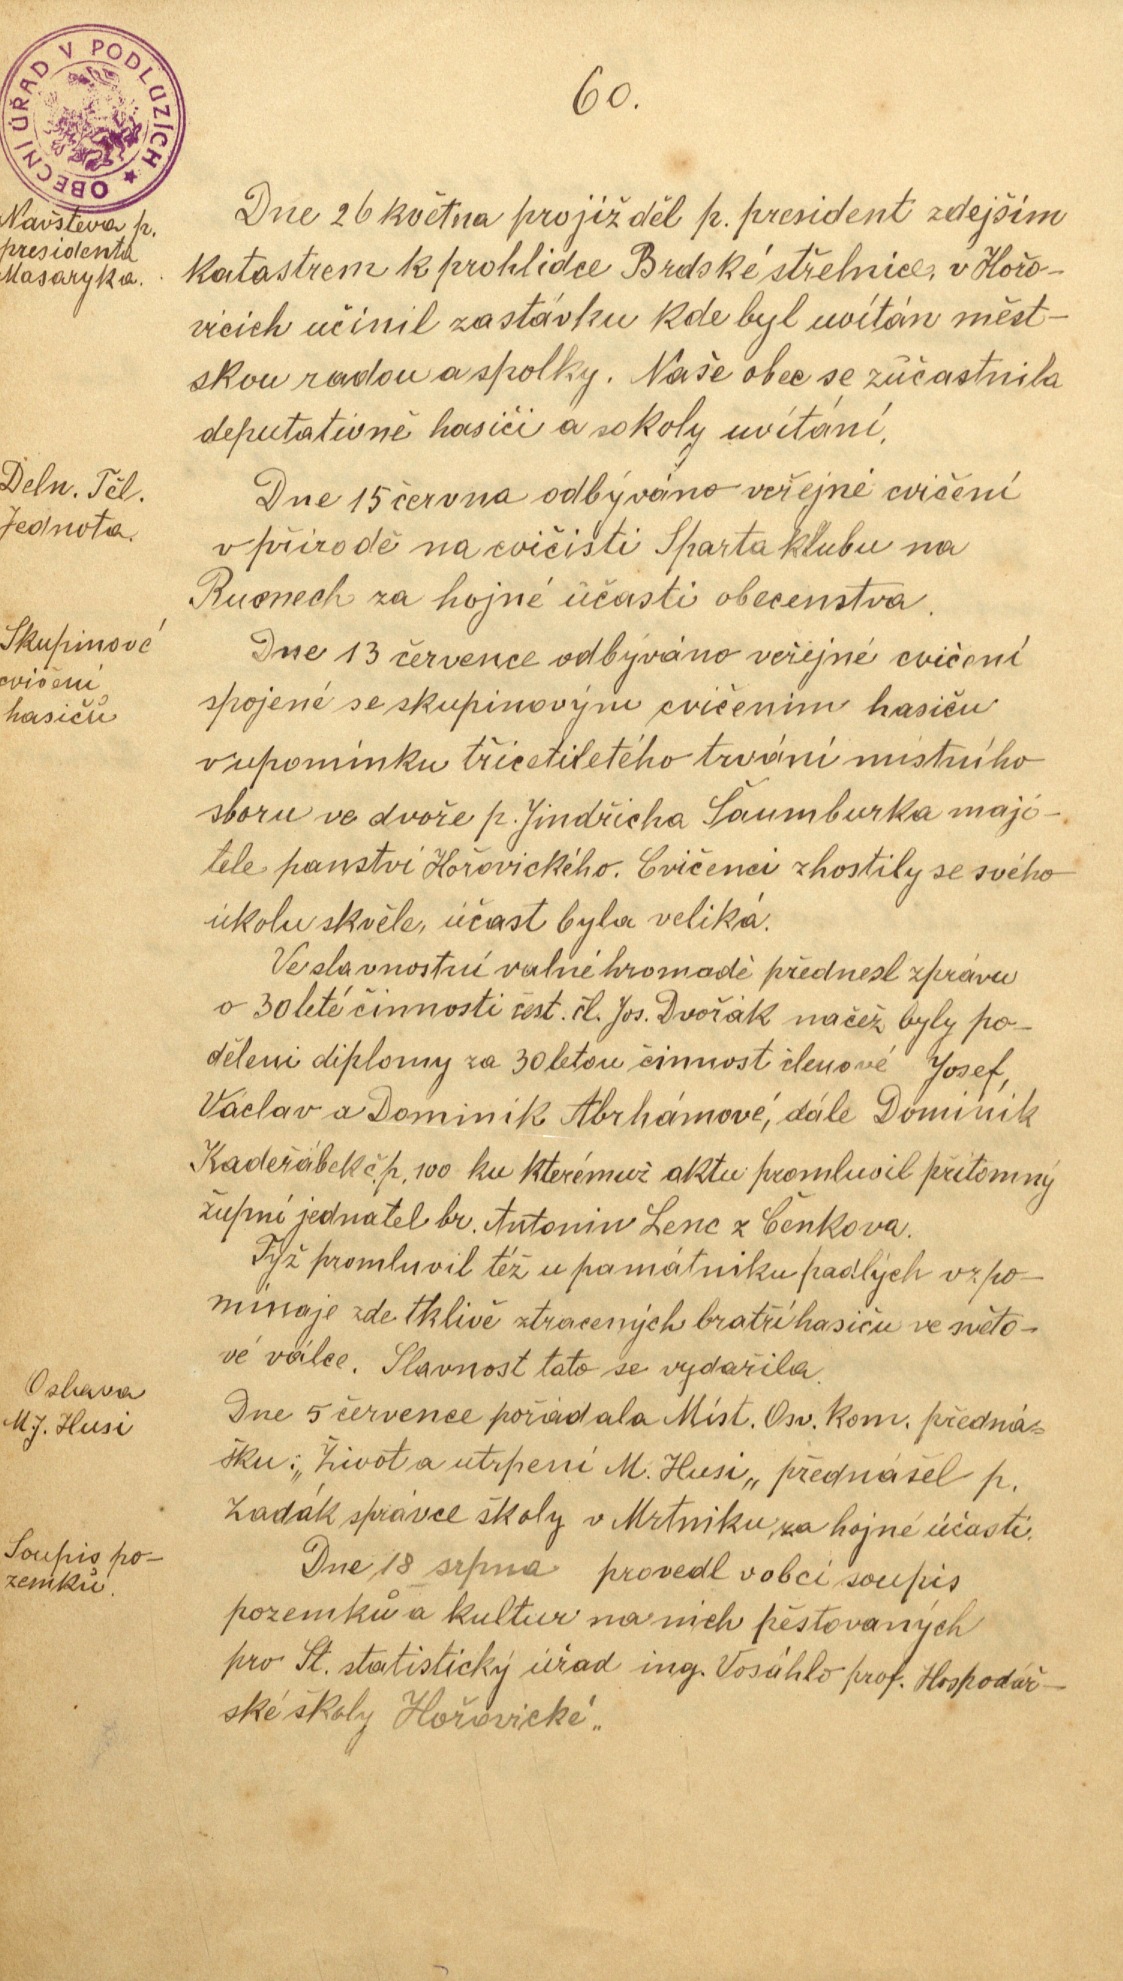 OBECNÍ ÚŘAD V PODLUZÍCH
60.
Navštěva p.
presidenta
Masaryka.
Dne 26 května projížděl p. president zdejším
katastrem k prohlídce Brdské střelnice, v Hořo-
vicích učinil zastávku kde byl uvítán měst-
skou radou a spolky. Naše obec se zúčastnila
deputativně hasiči a sokoly uvítání.
Deln. Těl.
Jednota.
Dne 15 června odbýváno veřejné cvičení
v přírodě na cvičisti Sparta klubu na
za hojné účasti obecenstva.
Skupinové
cvičení
hasičů
Dne 13 července odbýváno veřejné cvičení
spojené se skupinovým cvičením hasičů
v upomínku třicetiletého trvání místního
sboru ve dvoře p. Jindřicha Šaumburka maji-
tele panství Hořovického. Cvičenci zhostily se svého
úkolu skvěle, účast byla veliká.
Ve slavnostní valné hromadě přednesl zprávu
o 30 leté činnosti čest. čl. Jos. Dvořák načež byly po-
děleni diplomy za 30 letou činnost členové Josef,
Václav a Dominik Abrhámové, dále Dominik
Kadeřábek č.p. 100 ku kterémuž aktu promluvil přítomný
župní jednatel br. Antonin Lenc z Čenkova.
Týž promluvil též u památniku padlých vzpo-
mínaje zde tklivě ztracených bratří hasičů ve světo-
vé válce. Slavnost tato se vydařila.
Oslava
M J. Husi
Dne 5 července pořádala Míst. Osv. kom. předná-
šku: „Život a utrpení M. Husi„ přednášel p.
Zadák správce školy v Mrtniku, za hojné účasti.
Soupis po-
zemků.
Dne 18 srpna provedl v obci soupis
pozemků a kultur na nich pěstovaných
pro St. statistický úřad ing. Vosáhlo prof. Hospodář-
ské školy Hořovické„